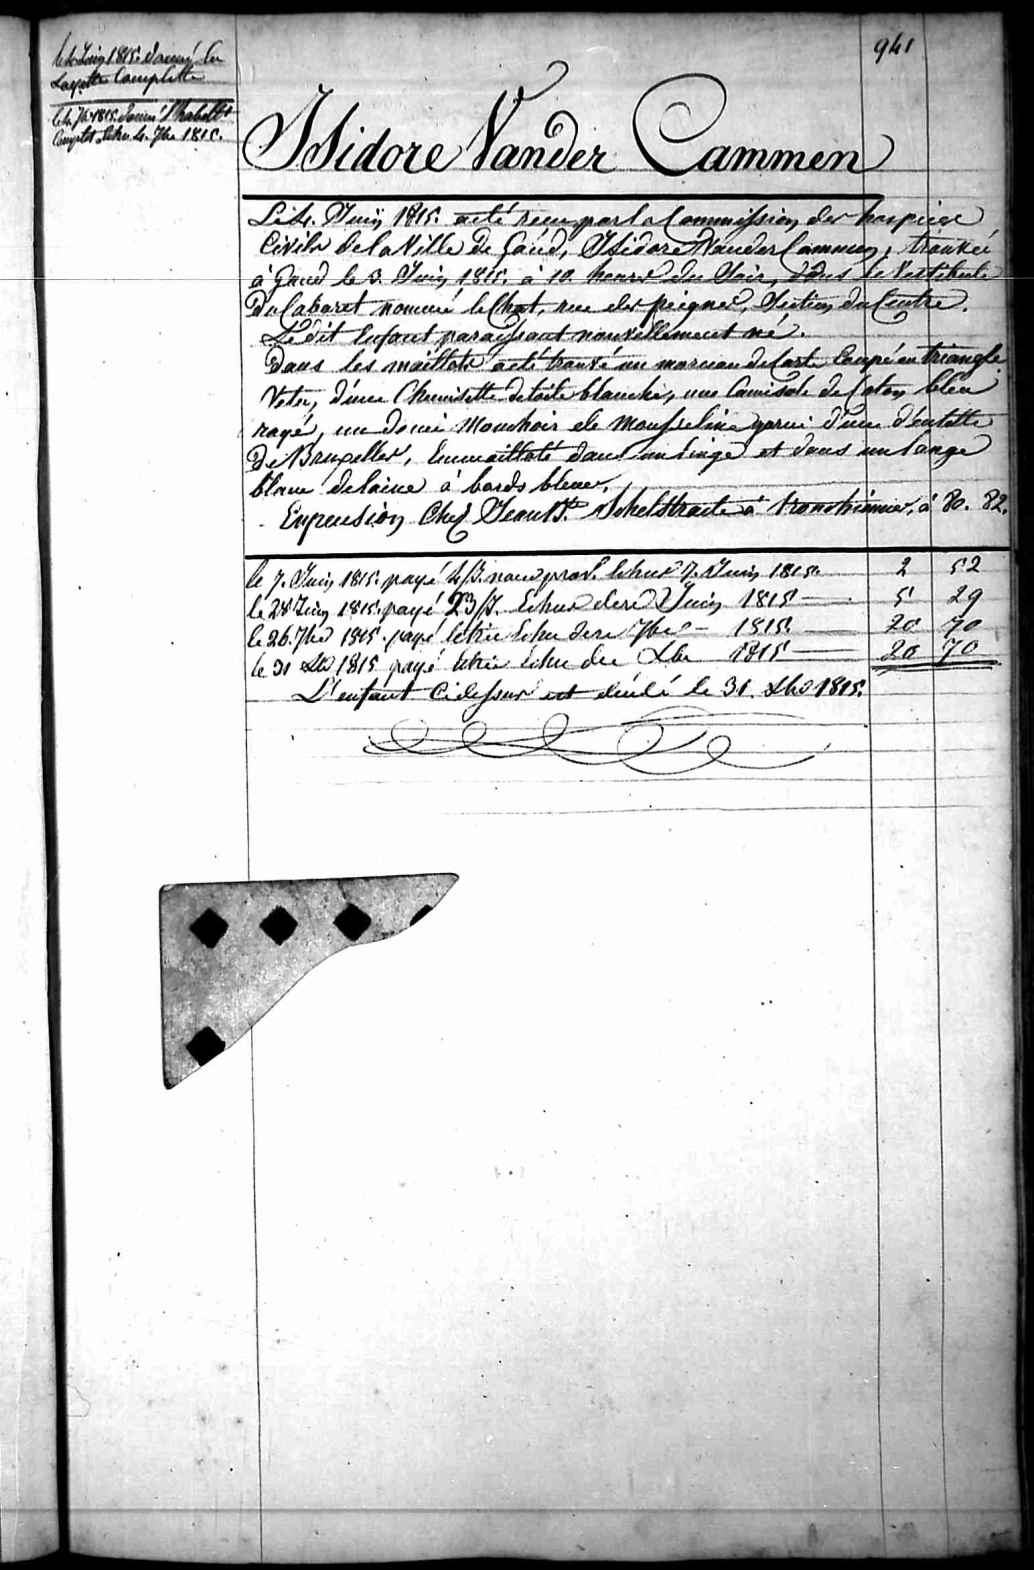 941
le 4. Juin 1815. donné la
Layette Complette
le 4. 7b. 1815. donné l'habillt
Complet Echu 4. 7bre 1815.
Isidore Vander Cammen
Le 4. Juin 1815. a été reçu par la Commission des hospices
Civils de la Ville de Gand, Isidore Vander Cammen, trouvé
à Gand le 3. Juin 1815. à 10. heures du Soir, dans le Vestibule
du Cabaret nommé le Chat, rue des peignes, Section du Centre.
Ledit Enfant paraissant nouvellement né.
Dans les maillots a été trouvé un morceau de Carte Coupé en triangle
Vetu, d'une Chemisette de toile blanche, une Camisole de Coton bleu
rayé, un demi Mouchoir de Mousseline garni d'une d'entelle
de Bruxelles, Emmailloté dans un linge et dans un lange
blanc de laine à bords bleus,
En pension Chez Jean Bte. Schelstraete à tronchiennes, à 80. 82.
le 7. Juin 1815. payé 4/J. nour prov. Echus 7. Juin 1815. 2 52
le 28 Juin 1815. payé 23/J. Echus dere Juin 1815 5 29
le 26. 7bre 1815. payé letrie Echu dere 7bre 1815. 20 70
le 31 Xbre 1815 payé letrie Echu der Xbre 1815 20 70
L'enfant Cidessus est décédé le 31. Xbre 1815.